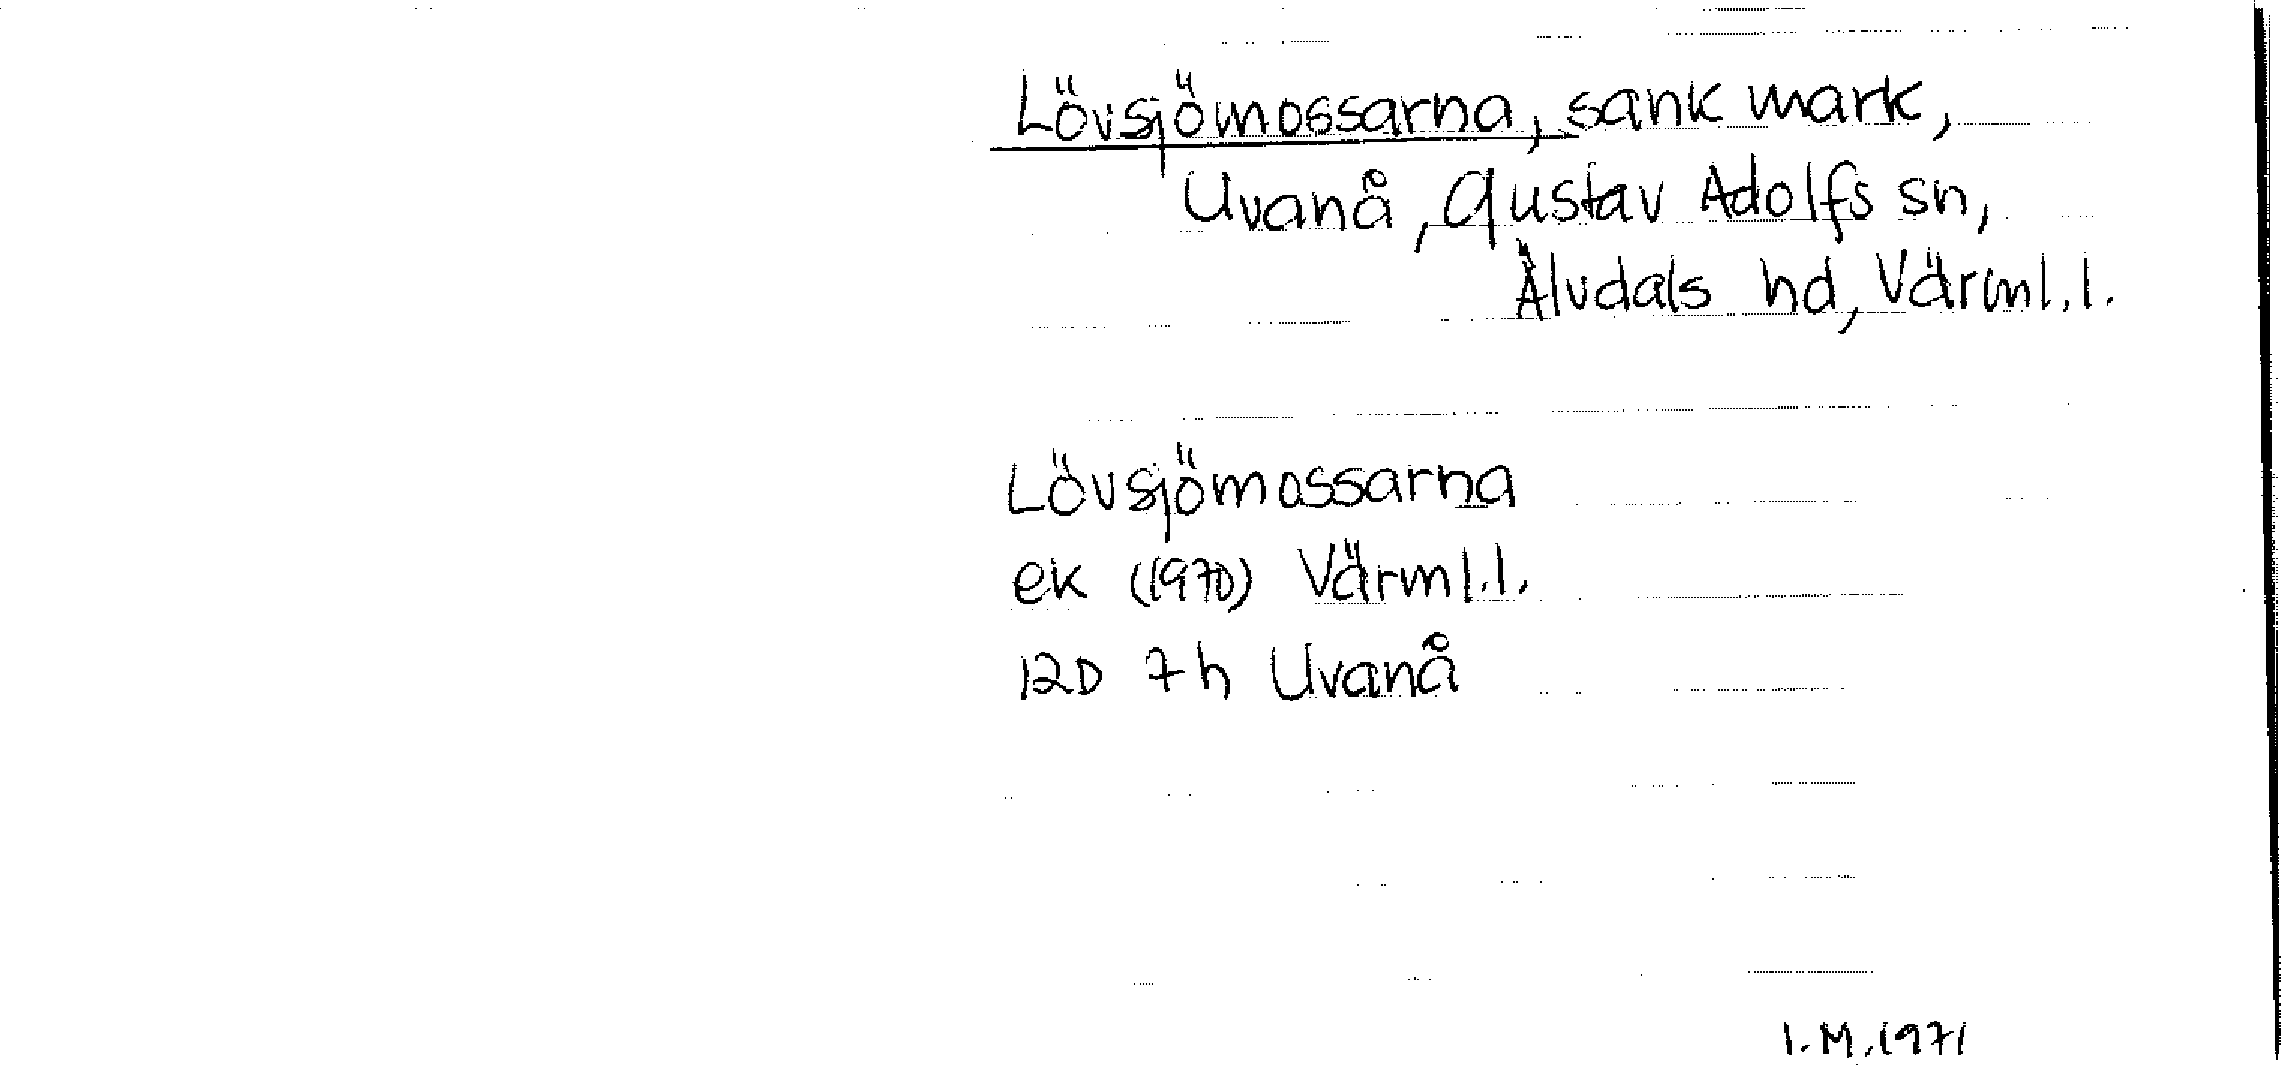 Lövsjömossarna, sank mark,
Uvanå, Gustav Adolfs sn,
Älvdals hd, Värml.l.
Lövsjömossarna
ek (1970) Värml.l.
12D 7h Uvanå
I.M. 1971